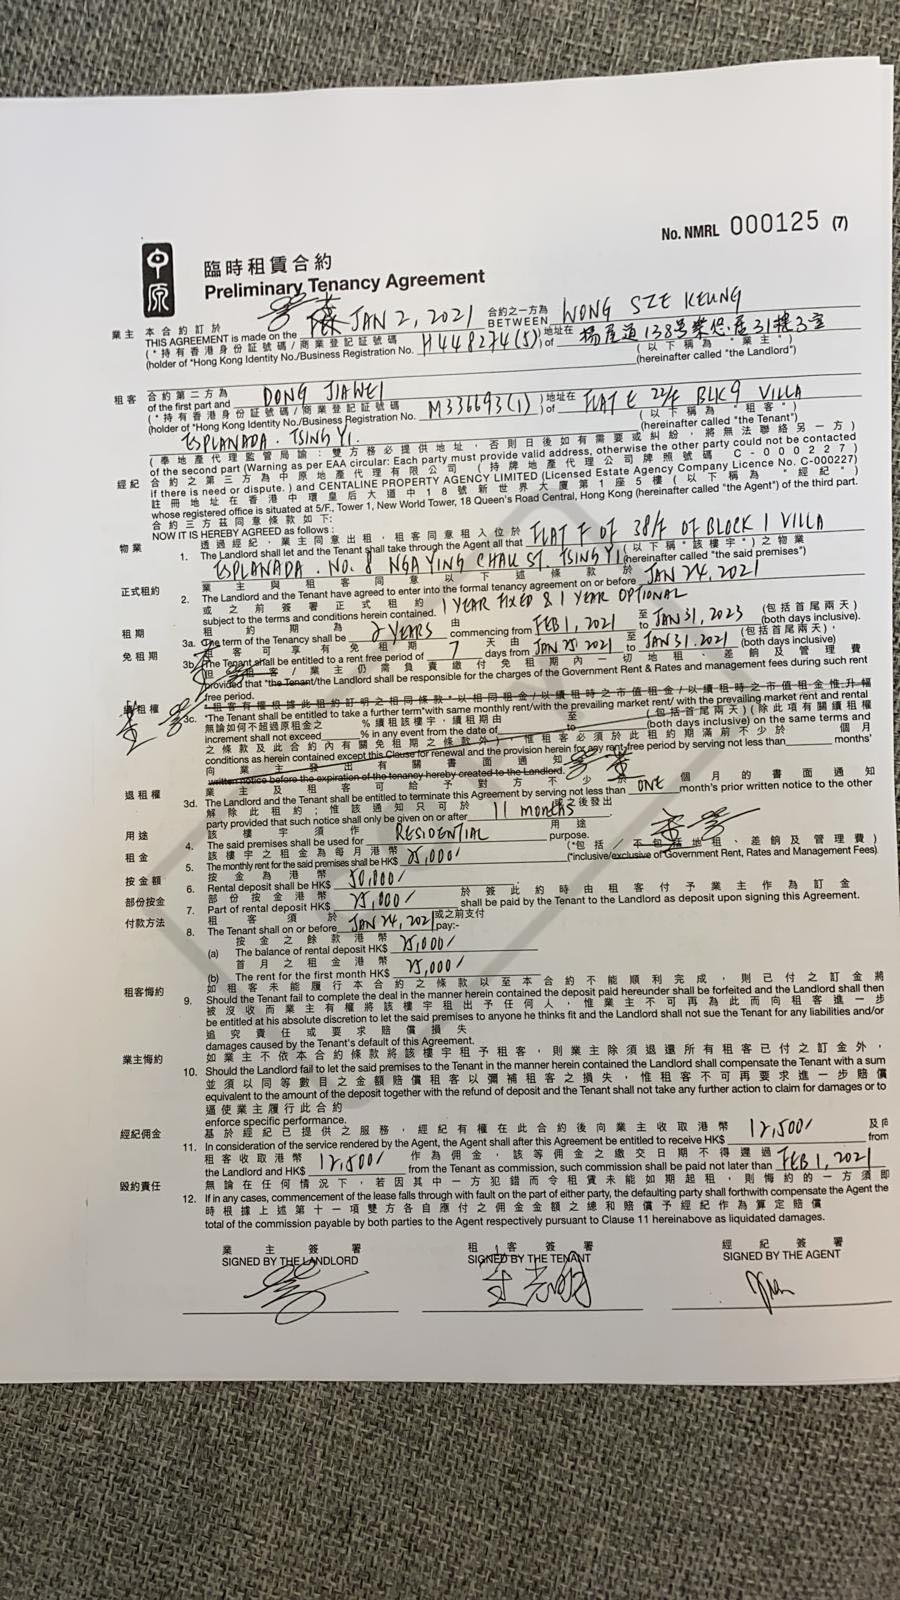 No. NMRL 000125 (7)
中原
臨時租賃合約
Preliminary Tenancy Agreement
業主 本合約訂於 合約之一方為
THIS AGREEMENT is made on the JAN 2, 2021 BETWEEN WONG SZE KEUNG
(*持有香港身份証號碼/商業登記証號碼 地址在
(holder of *Hong Kong Identity No./Business Registration No. H448274(5) of 138號 31樓3室
(以下稱為"業主")
(hereinafter called "the Landlord")
租客 合約第二方為
of the first part and DONG JIAWEI
(*持有香港身份証號碼/商業登記証號碼 地址在
(holder of *Hong Kong Identity No./Business Registration No. M336693(1) of FLAT E 22/F BLK 9 VILLA
(以下稱為"租客")
(hereinafter called "the Tenant")
ESPLANADA. TSING YI.
(奉地產代理監管局諭：雙方務必提供地址，否則日後如有需要或糾紛，將無法聯絡另一方)
of the second part (Warning as per EAA circular: Each party must provide valid address, otherwise the other party could not be contacted
經紀 合約之第三方為中原地產代理有限公司(持牌地產代理公司牌照號碼C-000227)
if there is need or dispute.) and CENTALINE PROPERTY AGENCY LIMITED (Licensed Estate Agency Company Licence No. C-000227)
註冊地址在香港中環皇后大道中18號新世界大廈第1座5樓(以下稱為"經紀")
whose registered office is situated at 5/F., Tower 1, New World Tower, 18 Queen's Road Central, Hong Kong (hereinafter called "the Agent") of the third part.
合約三方茲同意條款如下:
NOW IT IS HEREBY AGREED as follows :
物業 透過經紀，業主同意出租，租客同意租入位於 (以下稱"該樓宇")之物業
1. The Landlord shall let and the Tenant shall take through the Agent all that FLAT F OF 38/F OF BLOCK 1 VILLA
ESPLANADA. NO. 8 NGA YING CHAU ST. TSING YI (hereinafter called "the said premises")
正式租約 業主與租客同意以下述條款於
2. The Landlord and the Tenant have agreed to enter into the formal tenancy agreement on or before JAN 24, 2021
或之前簽署正式租約
subject to the terms and conditions herein contained. 1 YEAR FIXED & 1 YEAR OPTIONAL
租期 租約期為 由 至 (包括首尾兩天)
3a. The term of the Tenancy shall be 2 YEARS commencing from FEB 1, 2021 to JAN 31, 2023 (both days inclusive).
免租期 租客可享有免租期 天由 至 (包括首尾兩天)，
3b. The Tenant shall be entitled to a rent free period of 7 days from JAN 25 2021 to JAN 31. 2021 (both days inclusive)
但租客/業主仍需負責繳付免租期內一切地租、差餉及管理費
provided that *the Tenant/the Landlord shall be responsible for the charges of the Government Rent & Rates and management fees during such rent
free period.
續租權 *租客有權根據此租約訂明之相同條款*以相同租金/以續租時之市值租金/以續租時之市值租金惟升幅
3c. *The Tenant shall be entitled to take a further term*with same monthly rent/with the prevailing market rent/ with the prevailing market rent and rental
無論如何不超過原租金之 % 續租該樓宇，續租期由 至 (包括首尾兩天)(除此項有關續租權
increment shall not exceed % in any event from the date of to (both days inclusive) on the same terms and
之條款及此合約內有關免租期之條款外)，惟租客必須於此租約期滿前不少於 個月
conditions as herein contained except this Clause for renewal and the provision herein for any rent-free period by serving not less than months'
向業主發出有關書面通知
written notice before the expiration of the tenancy hereby created to the Landlord.
退租權 業主及租客可給予對方不少於 個月的書面通知
3d. The Landlord and the Tenant shall be entitled to terminate this Agreement by serving not less than ONE month's prior written notice to the other
解除此租約；惟該通知只可於 之後發出
party provided that such notice shall only be given on or after 11 months.
用途 該樓宇須作 用途
4. The said premises shall be used for RESIDENTIAL purpose.
租金 該樓宇之租金為每月港幣 (*包括/不包括地租、差餉及管理費)
5. The monthly rent for the said premises shall be HK$ 25,000/ (*inclusive/exclusive of Government Rent, Rates and Management Fees).
按金額 按金為港幣
6. Rental deposit shall be HK$ 50,000/
部份按金 部份按金港幣 於簽此約時由租客付予業主作為訂金
7. Part of rental deposit HK$ 25,000/ shall be paid by the Tenant to the Landlord as deposit upon signing this Agreement.
付款方法 租客須於 或之前支付
8. The Tenant shall on or before JAN 24, 2021 pay:-
按金之餘款港幣
(a) The balance of rental deposit HK$ 25,000/
首月之租金港幣
(b) The rent for the first month HK$ 25,000/
租客悔約 如租客未能履行本合約之條款以至本合約不能順利完成，則已付之訂金將
9. Should the Tenant fail to complete the deal in the manner herein contained the deposit paid hereunder shall be forfeited and the Landlord shall then
被沒收而業主有權將該樓宇租出予任何人，惟業主不可再為此而向租客進一步
be entitled at his absolute discretion to let the said premises to anyone he thinks fit and the Landlord shall not sue the Tenant for any liabilities and/or
追究責任或要求賠償損失
damages caused by the Tenant's default of this Agreement.
業主悔約 如業主不依本合約條款將該樓宇租予租客，則業主除須退還所有租客已付之訂金外，
10. Should the Landlord fail to let the said premises to the Tenant in the manner herein contained the Landlord shall compensate the Tenant with a sum
並須以同等數目之金額賠償租客以彌補租客之損失，惟租客不可再要求進一步賠償
equivalent to the amount of the deposit together with the refund of deposit and the Tenant shall not take any further action to claim for damages or to
逼使業主履行此合約
enforce specific performance.
經紀佣金 基於經紀已提供之服務，經紀有權在此合約後向業主收取港幣 及向
11. In consideration of the service rendered by the Agent, the Agent shall after this Agreement be entitled to receive HK$ 12,500/ from
租客收取港幣 作為佣金，該等佣金之繳交日期不得遲過
the Landlord and HK$ 12,500/ from the Tenant as commission, such commission shall be paid not later than FEB 1, 2021
毀約責任 無論在任何情況下，若因其中一方犯錯而令租賃未能如期起租，則悔約的一方須即
12. If in any cases, commencement of the lease falls through with fault on the part of either party, the defaulting party shall forthwith compensate the Agent the
時根據上述第十一項雙方各自應付之佣金金額之總和賠償予經紀作為算定賠償
total of the commission payable by both parties to the Agent respectively pursuant to Clause 11 hereinabove as liquidated damages.
業主簽署 租客簽署 經紀簽署
SIGNED BY THE LANDLORD SIGNED BY THE TENANT SIGNED BY THE AGENT